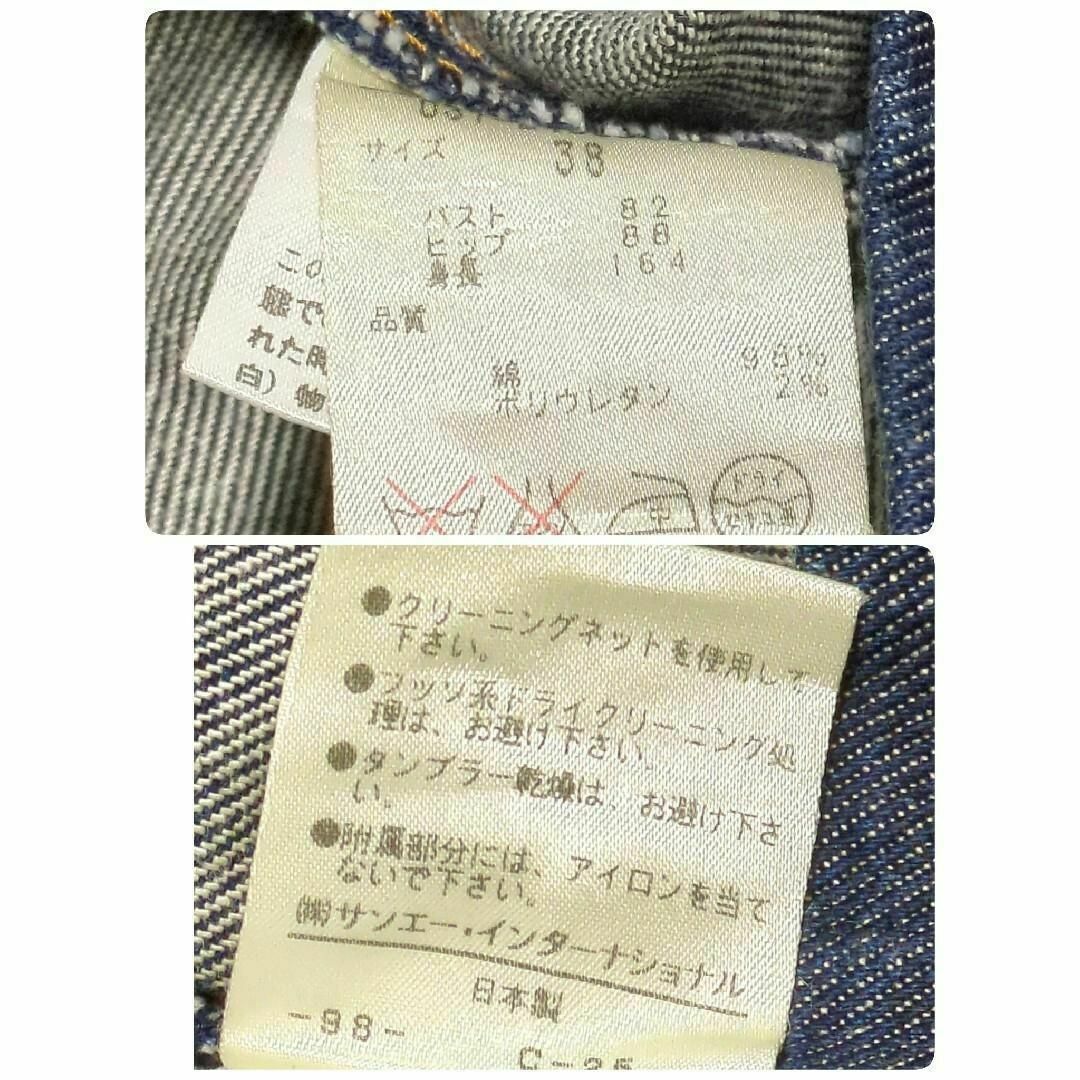 サイズ 38
バスト 82
ヒップ 88
身長 164
品質
綿 98%
ポリウレタン 2%
中
ドライ
この
態で
れた時
白）物
●クリーニングネットを使用して
下さい。
●フッソ系ドライクリーニング処
理は、お避け下さい。
●タンブラー乾燥は、お避け下さ
い。
●附属部分には、アイロンを当て
ないで下さい。
㈱サンエー・インターナショナル
日本製
-98-